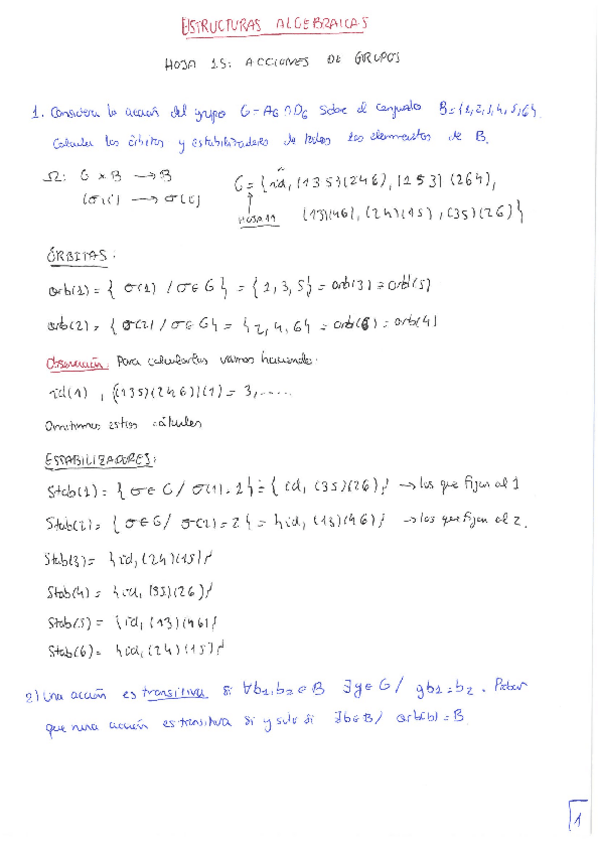 ESTRUCTURAS ALGEBRAICAS
HOJA 15: ACCIONES DE GRUPOS
1. Considera la acción del grupo G=A6∩D6 sobre el conjunto B={1,2,3,4,5,6}.
Calcular las órbitas y estabilizadores de todos los elementos de B.
Ω: G x B → B
(σ,i) → σ(i)
G = {id, (135)(246), (153)(264),
HOJA 11
(13)(46), (24)(15), (35)(26)}
ÓRBITAS:
orb(1) = {σ(1) / σ∈G} = {1,3,5} = orb(3) = orb(5)
orb(2) = {σ(2) / σ∈G} = {2,4,6} = orb(6) = orb(4)
Observación: Para calcularlas vamos haciendo:
id(1), ((135)(246))(1) = 3, .....
Omitimos estos cálculos
ESTABILIZADORES:
Stab(1) = {σ∈G / σ(1)=1} = {id, (35)(26)} → los que fijan al 1
Stab(2) = {σ∈G / σ(2)=2} = {id, (13)(46)} → los que fijan al 2.
Stab(3) = {id, (24)(15)}
Stab(4) = {id, (35)(26)}
Stab(5) = {id, (13)(46)}
Stab(6) = {id, (24)(15)}
2) Una acción es transitiva si ∀b1,b2∈B ∃g∈G / gb1=b2. Probar
que una acción es transitiva si y solo si ∃b∈B / orb(b)=B.
1